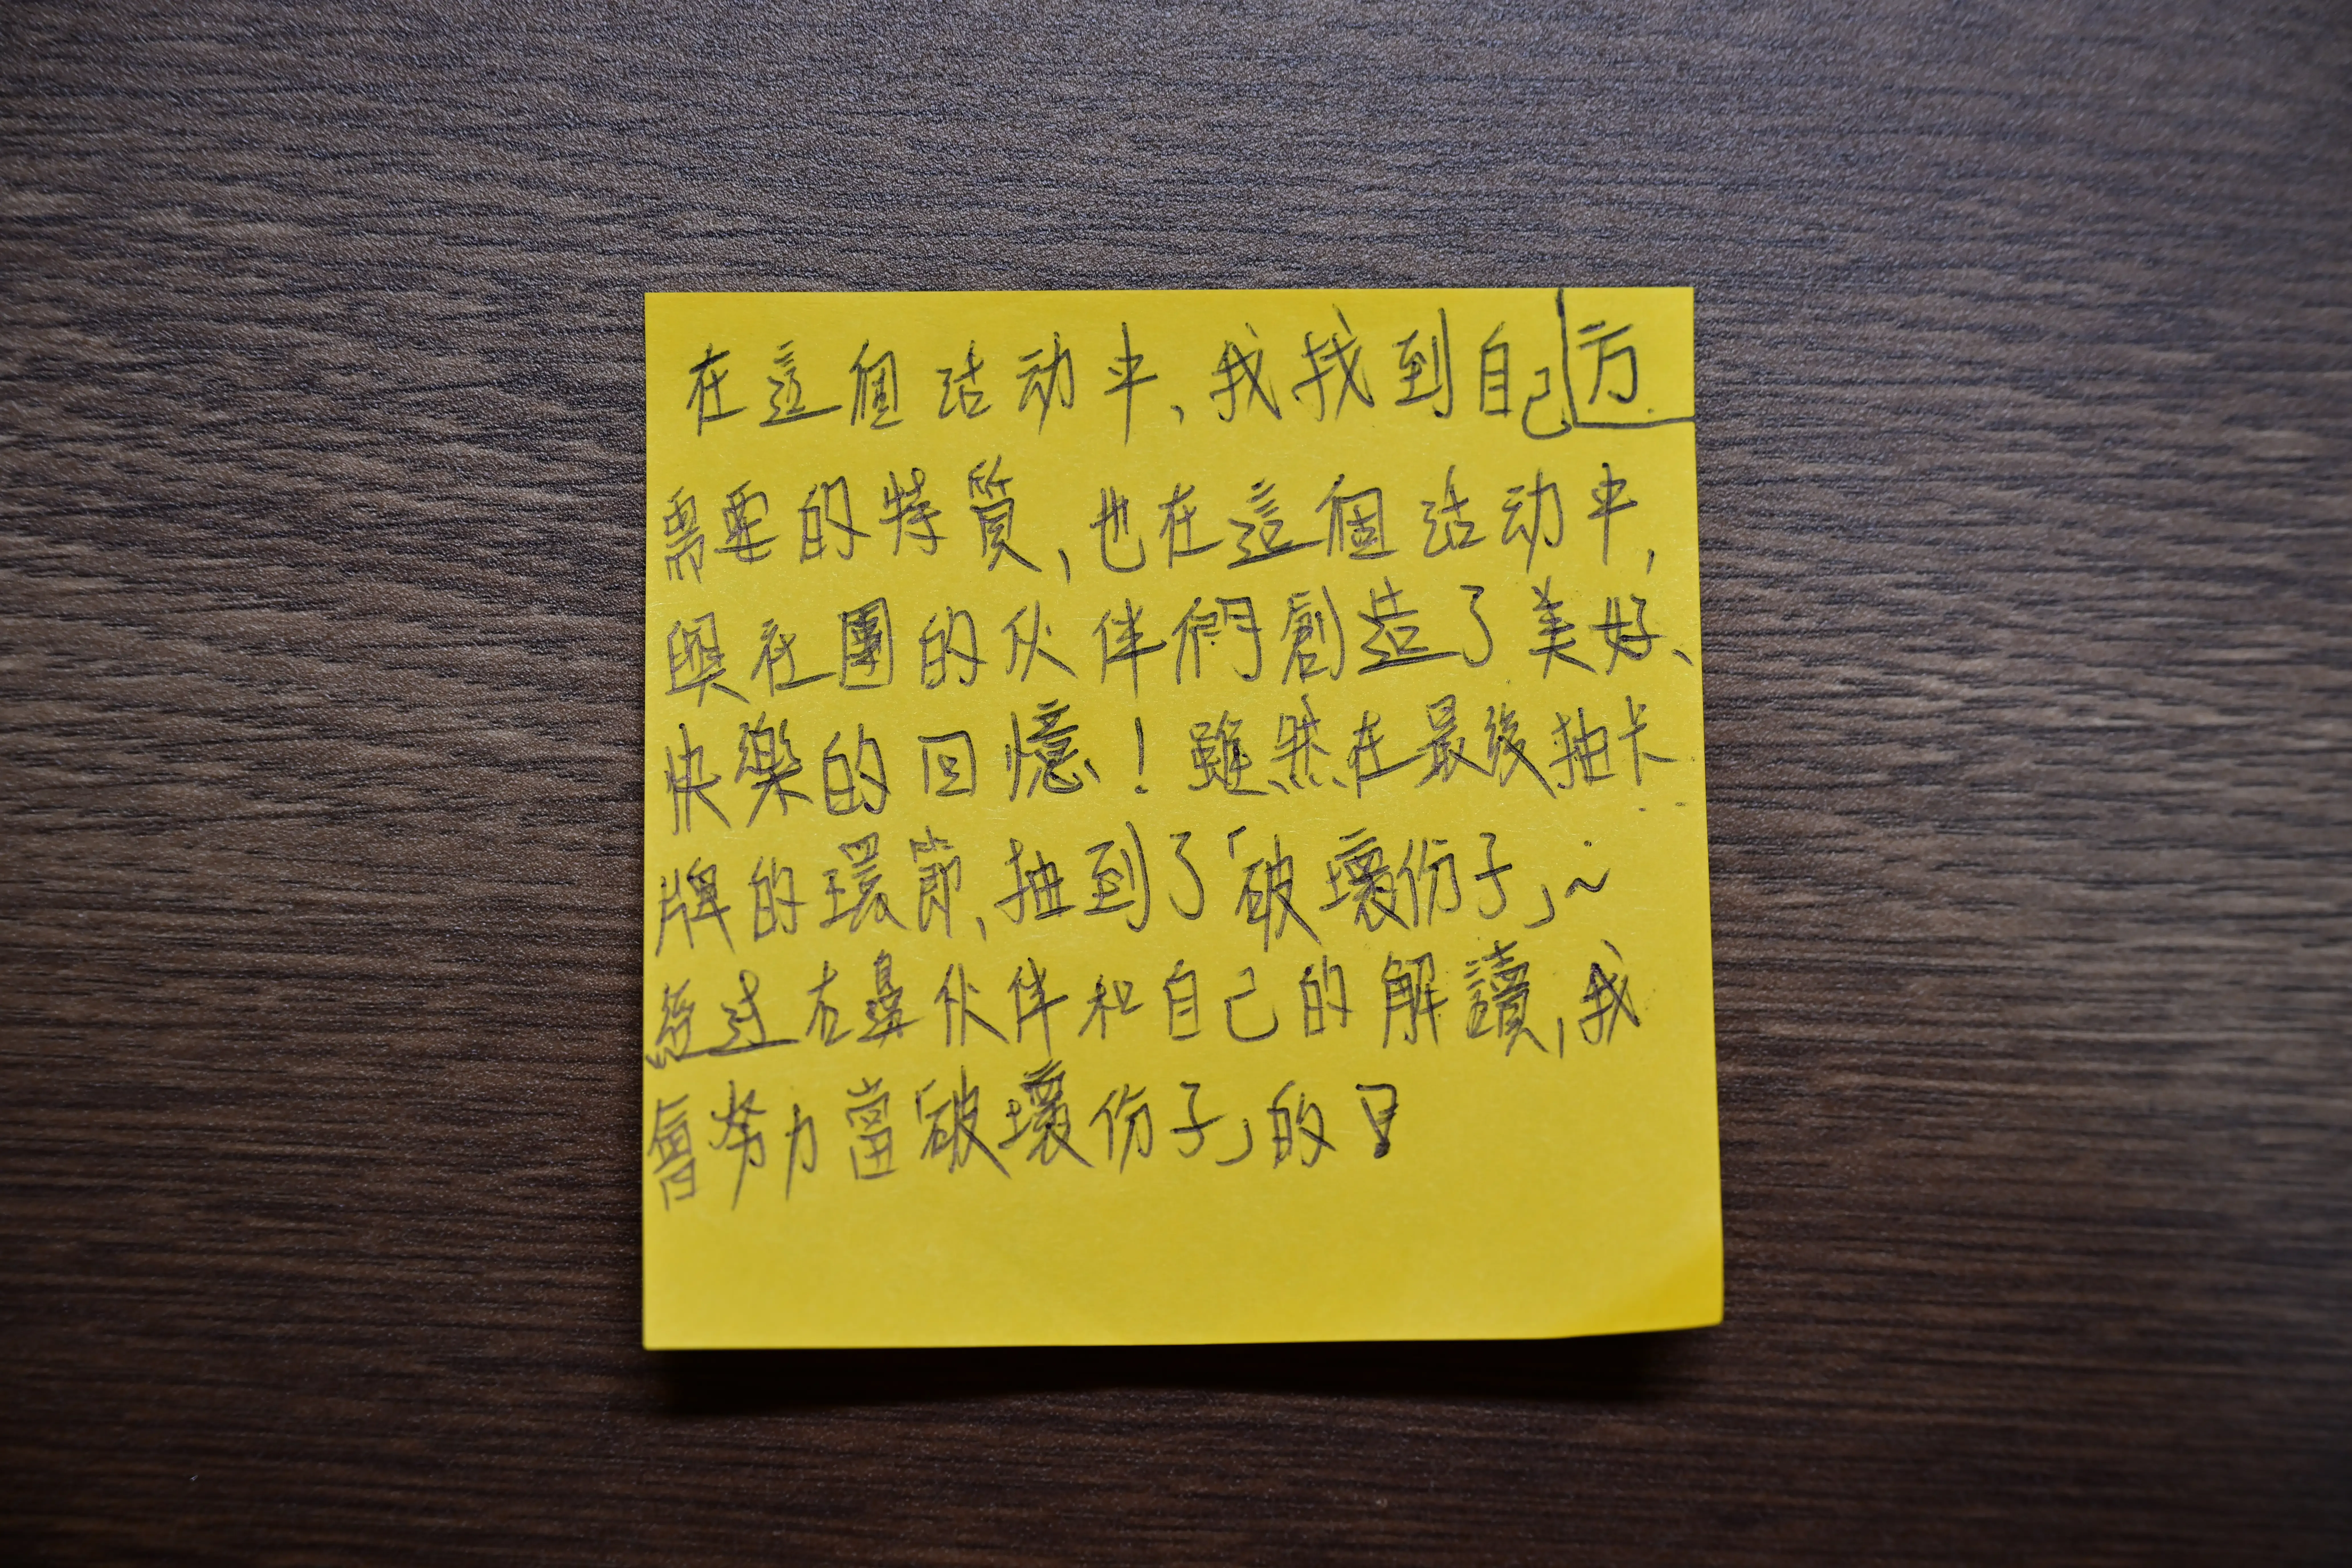 在這個活动中、我找到自己 方
需要的特質,也在這個活动中,
與社團的伙伴們創造了美好、
快樂的回憶!雖然在最後抽卡
牌的環節,抽到了「破壞份子」~
經过右邊伙伴和自己的解讀,我
會努力當「破壞份子」的!